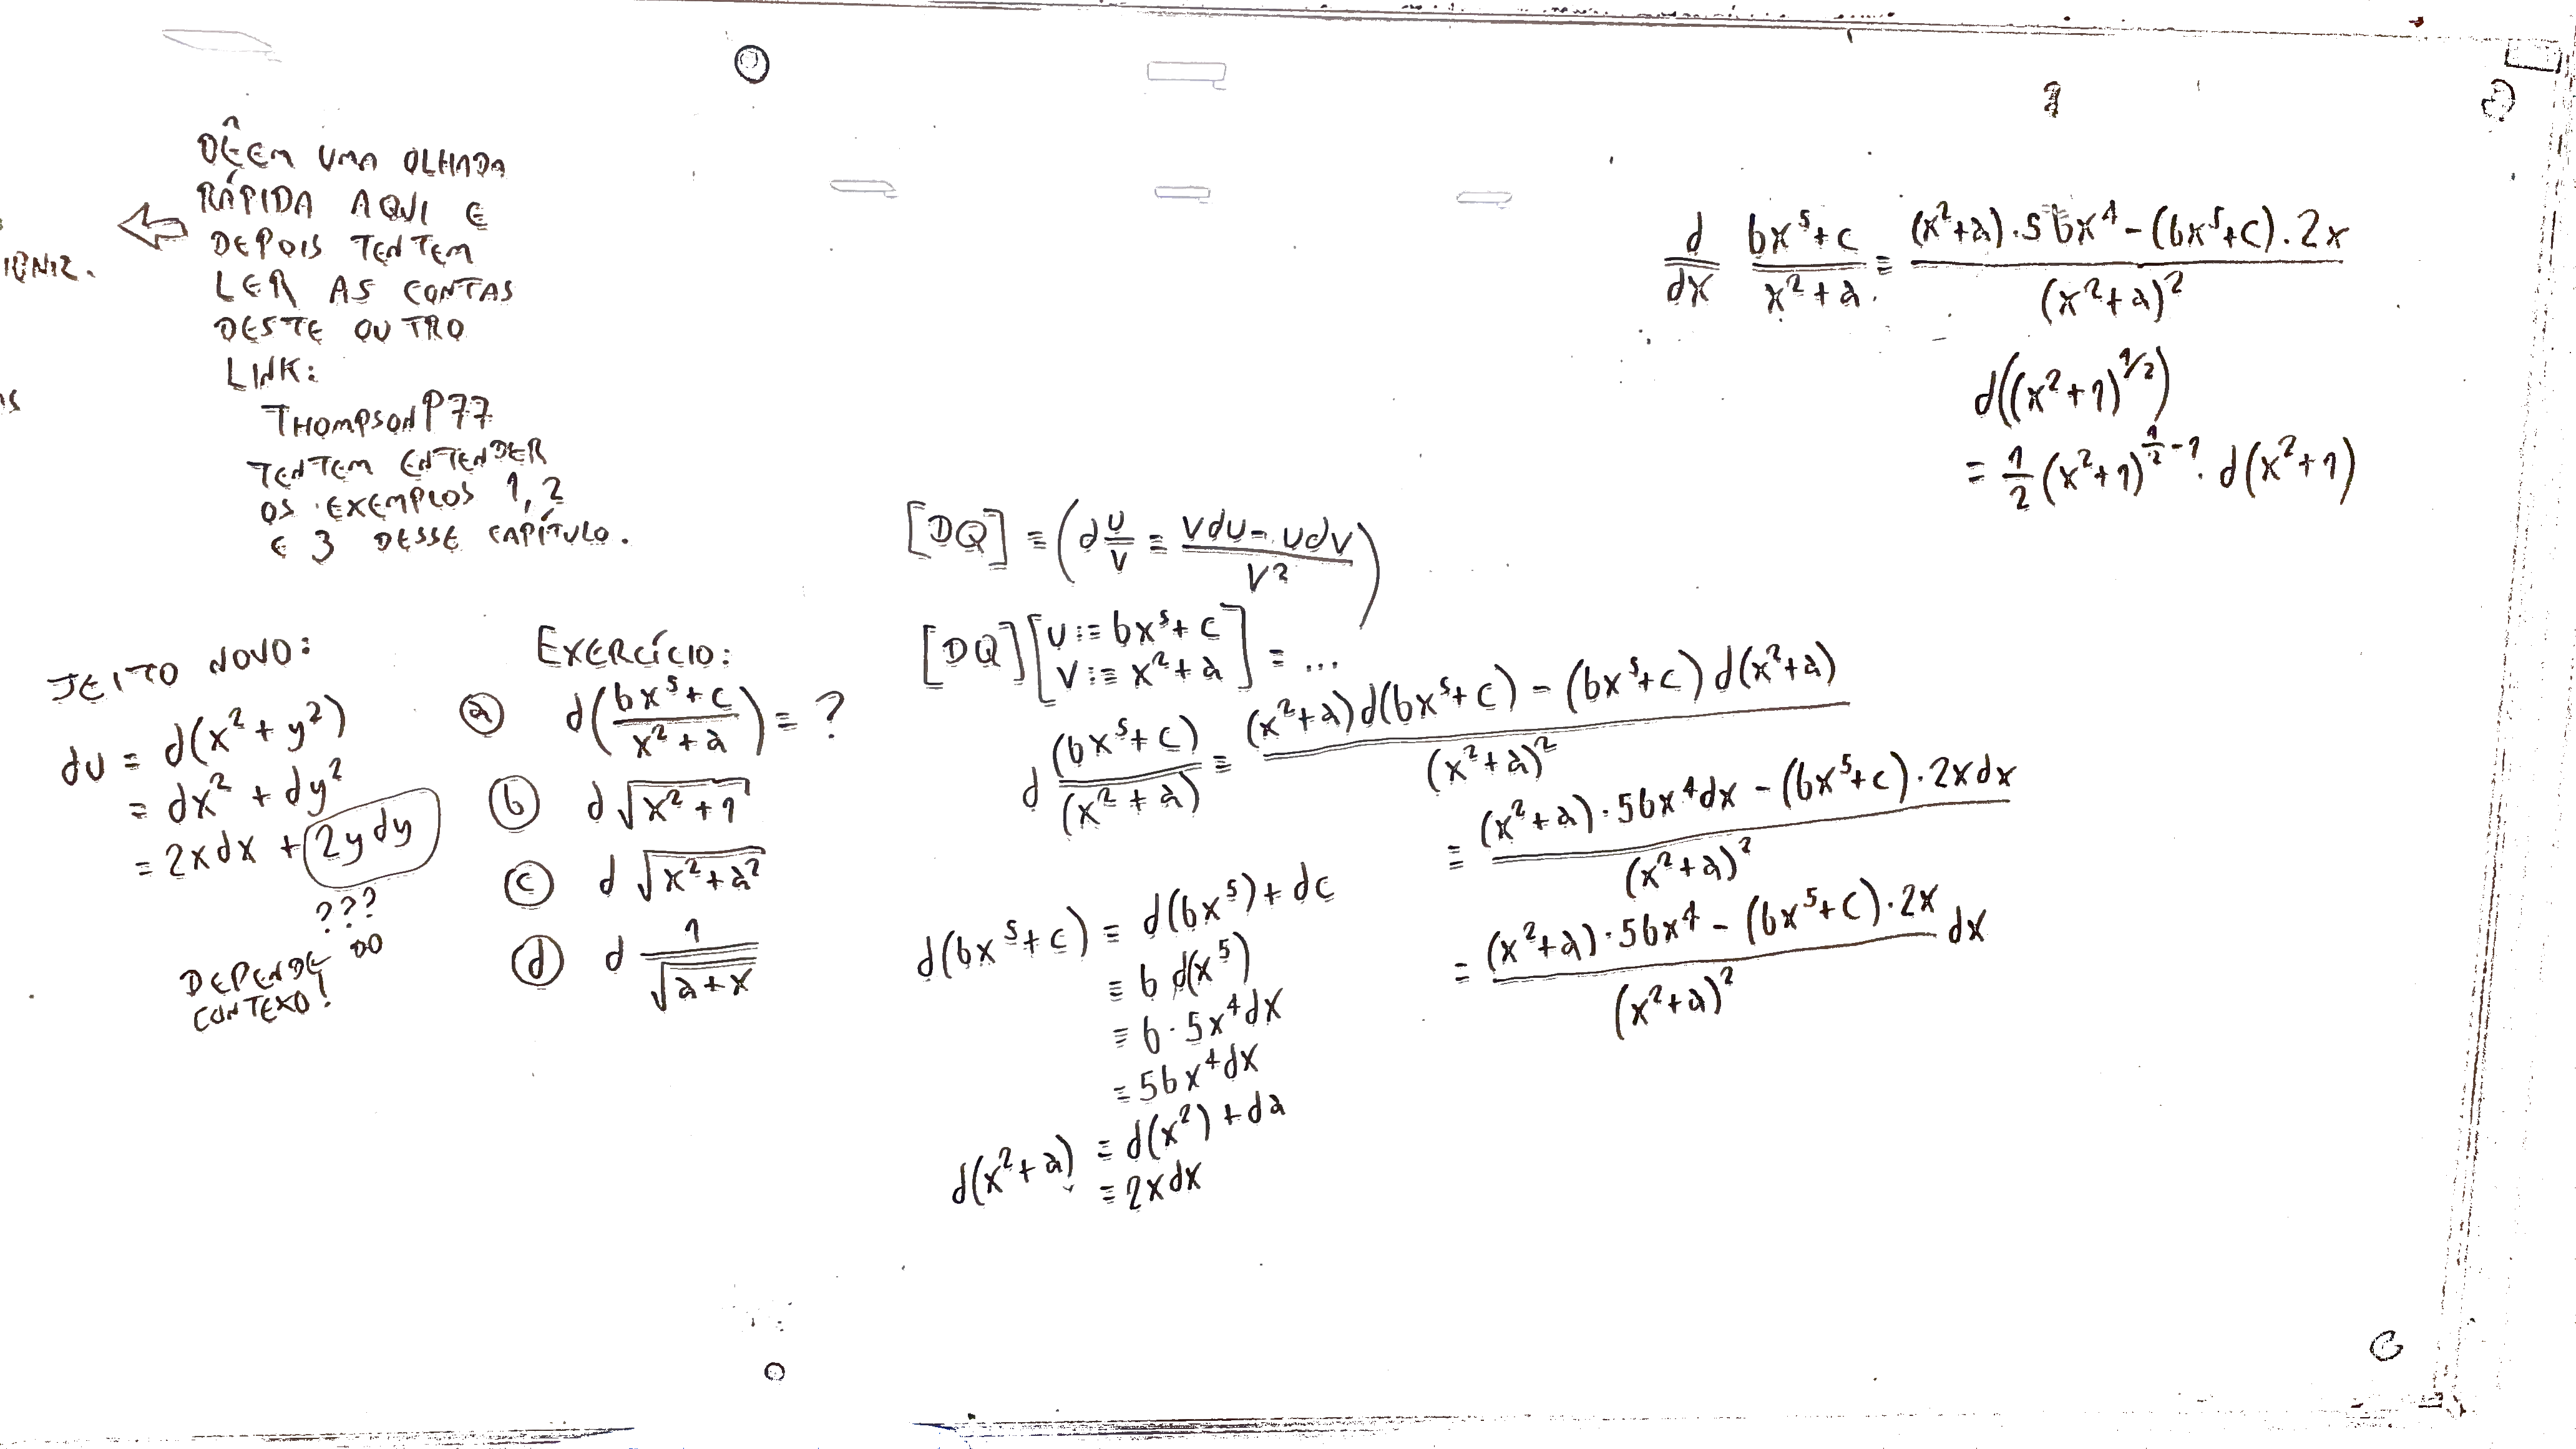 DÊEM UMA OLHADA
RÁPIDA AQUI E
DEPOIS TENTEM
LER AS CONTAS
DESTE OUTRO
LINK:
THOMPSONP77
TENTEM ENTENDER
OS EXEMPLOS 1, 2
E 3 DESSE CAPÍTULO.
JEITO NOVO:
du = d(x² + y²)
= dx² + dy²
= 2xdx + 2ydy
???
DEPENDE DO
CONTEXO!
EXERCÍCIO:
(a) d((bx⁵+c)/(x²+a)) = ?
(b) d√(x²+1)
(c) d√(x²+a²)
(d) d 1/√(a+x)
[DQ] = (d u/v = (vdu - udv)/v²)
[DQ] [u := bx⁵+c
v := x²+a] = ...
d (bx⁵+c)/(x²+a) = ((x²+a)d(bx⁵+c) - (bx⁵+c)d(x²+a))/(x²+a)²
= ((x²+a)·5bx⁴dx - (bx⁵+c)·2xdx)/(x²+a)²
= ((x²+a)·5bx⁴ - (bx⁵+c)·2x)/(x²+a)² dx
d(bx⁵+c) = d(bx⁵)+dc
= b d(x⁵)
= b·5x⁴dx
= 5bx⁴dx
d(x²+a) = d(x²)+da
= 2xdx
d/dx (bx⁵+c)/(x²+a) = ((x²+a)·5bx⁴ - (bx⁵+c)·2x)/(x²+a)²
d((x²+1)^(1/2))
= 1/2 (x²+1)^(1/2 - 1) · d(x²+1)